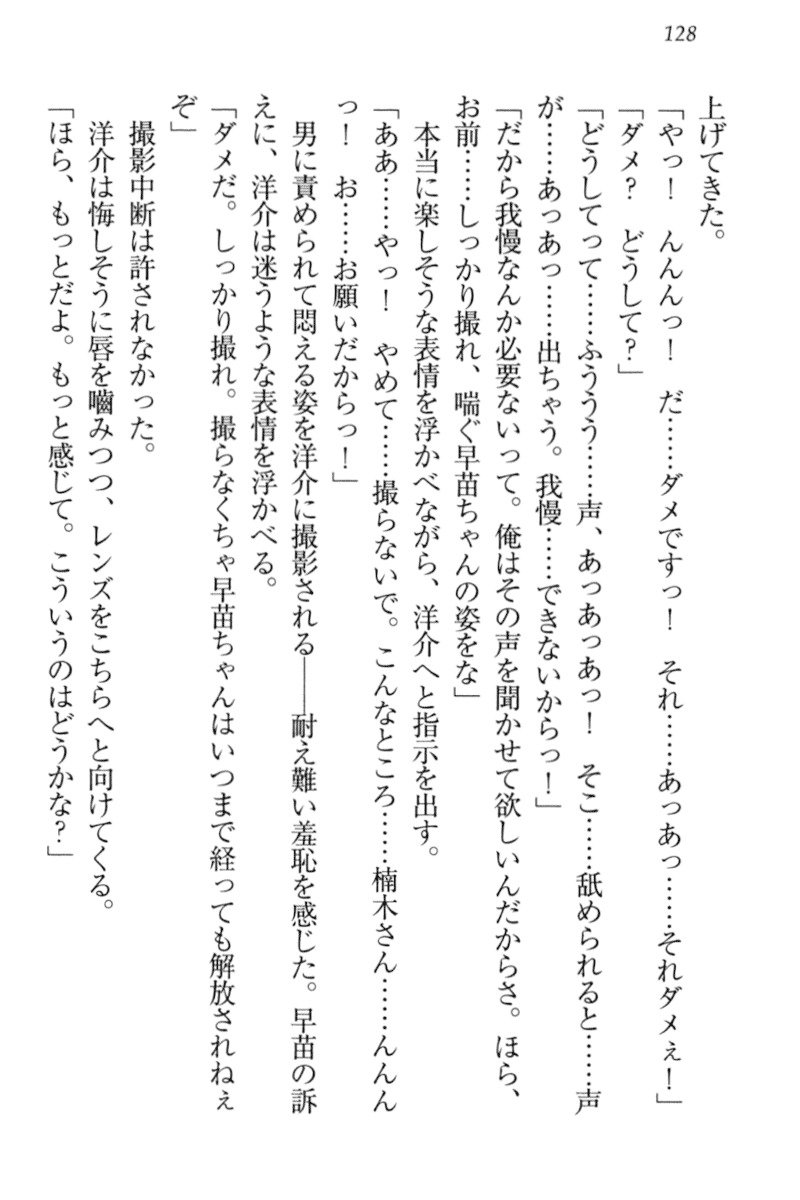 128
上げてきた。
「やっ！　んんんっ！　だ……ダメですっ！　それ……あっあっ……それダメぇ！」
「ダメ？　どうして？」
「どうしてって……ふううう……声、あっあっあっ！　そこ……舐められると……声
が……あっあっ……出ちゃう。我慢……できないからっ！」
「だから我慢なんか必要ないって。俺はその声を聞かせて欲しいんだからさ。ほら、
お前……しっかり撮れ、喘ぐ早苗ちゃんの姿をな」
本当に楽しそうな表情を浮かべながら、洋介へと指示を出す。
「ああ……やっ！　やめて……撮らないで。こんなところ……楠木さん……んんん
っ！　お……お願いだからっ！」
男に責められて悶える姿を洋介に撮影される――耐え難い羞恥を感じた。早苗の訴
えに、洋介は迷うような表情を浮かべる。
「ダメだ。しっかり撮れ。撮らなくちゃ早苗ちゃんはいつまで経っても解放されねぇ
ぞ」
撮影中断は許されなかった。
洋介は悔しそうに唇を噛みつつ、レンズをこちらへと向けてくる。
「ほら、もっとだよ。もっと感じて。こういうのはどうかな？」